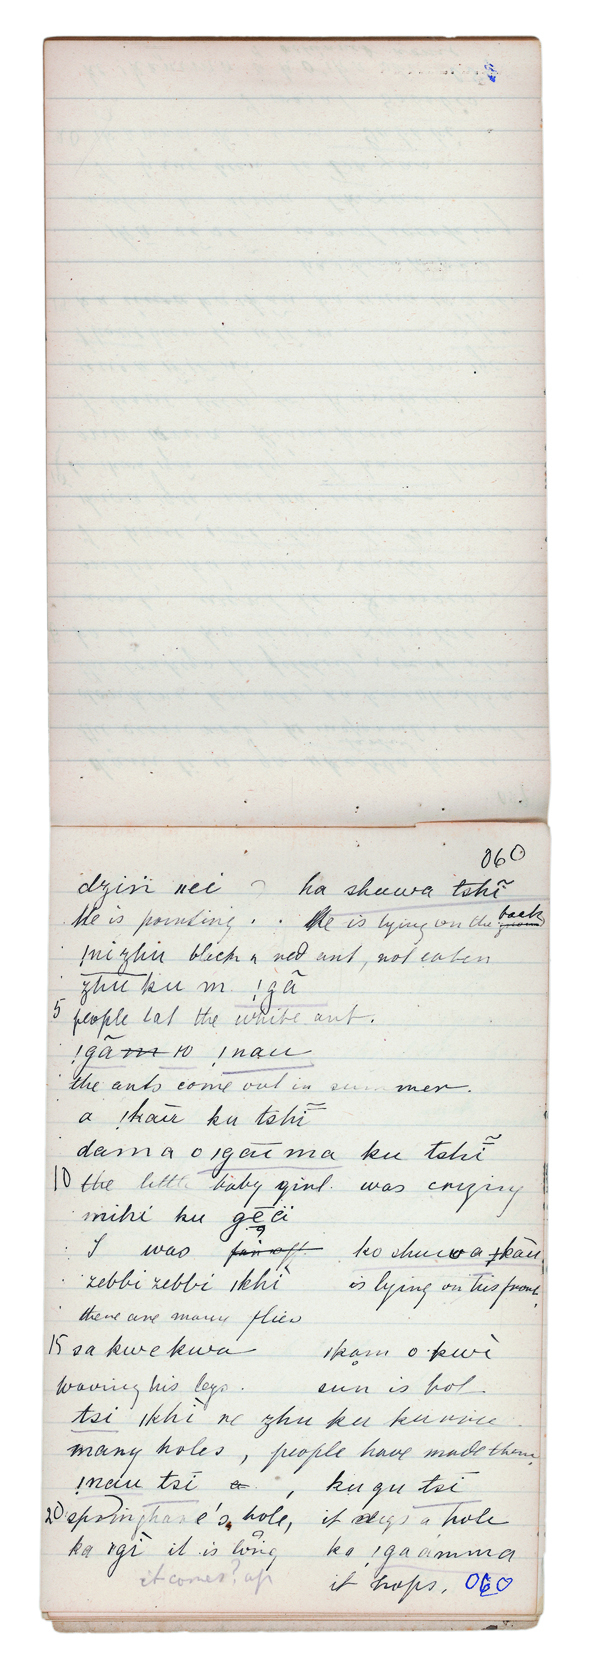 060
dziṅ nei ha shuwa tshĩ
He is pointing. . . He is lying on the back
!nizhu black & red ant, not eaten
zhu ku m !gã
5 people eat the white ant.
!gã m ro !nau
the ants come out in summer.
a !kāu ku tshĩ
dama o !gãi ma ku tshĩ
10 the little baby girl was crying
mihi ku gēä
I was far off ko shuwa a !kāu
zebbi zebbi ikhì is lying on his front.
there are many flies
15 sa kwe kwa ikam o kwì
waving his legs. sun is hot
tsi ikhì ne zhu ku kuruu
many holes, people have made them,
!nau tsi a , ku gu tsi
20 springhare's hole, it digs a hole
ka ngì it is long ka !gaámma
it comes? up it hops, 060